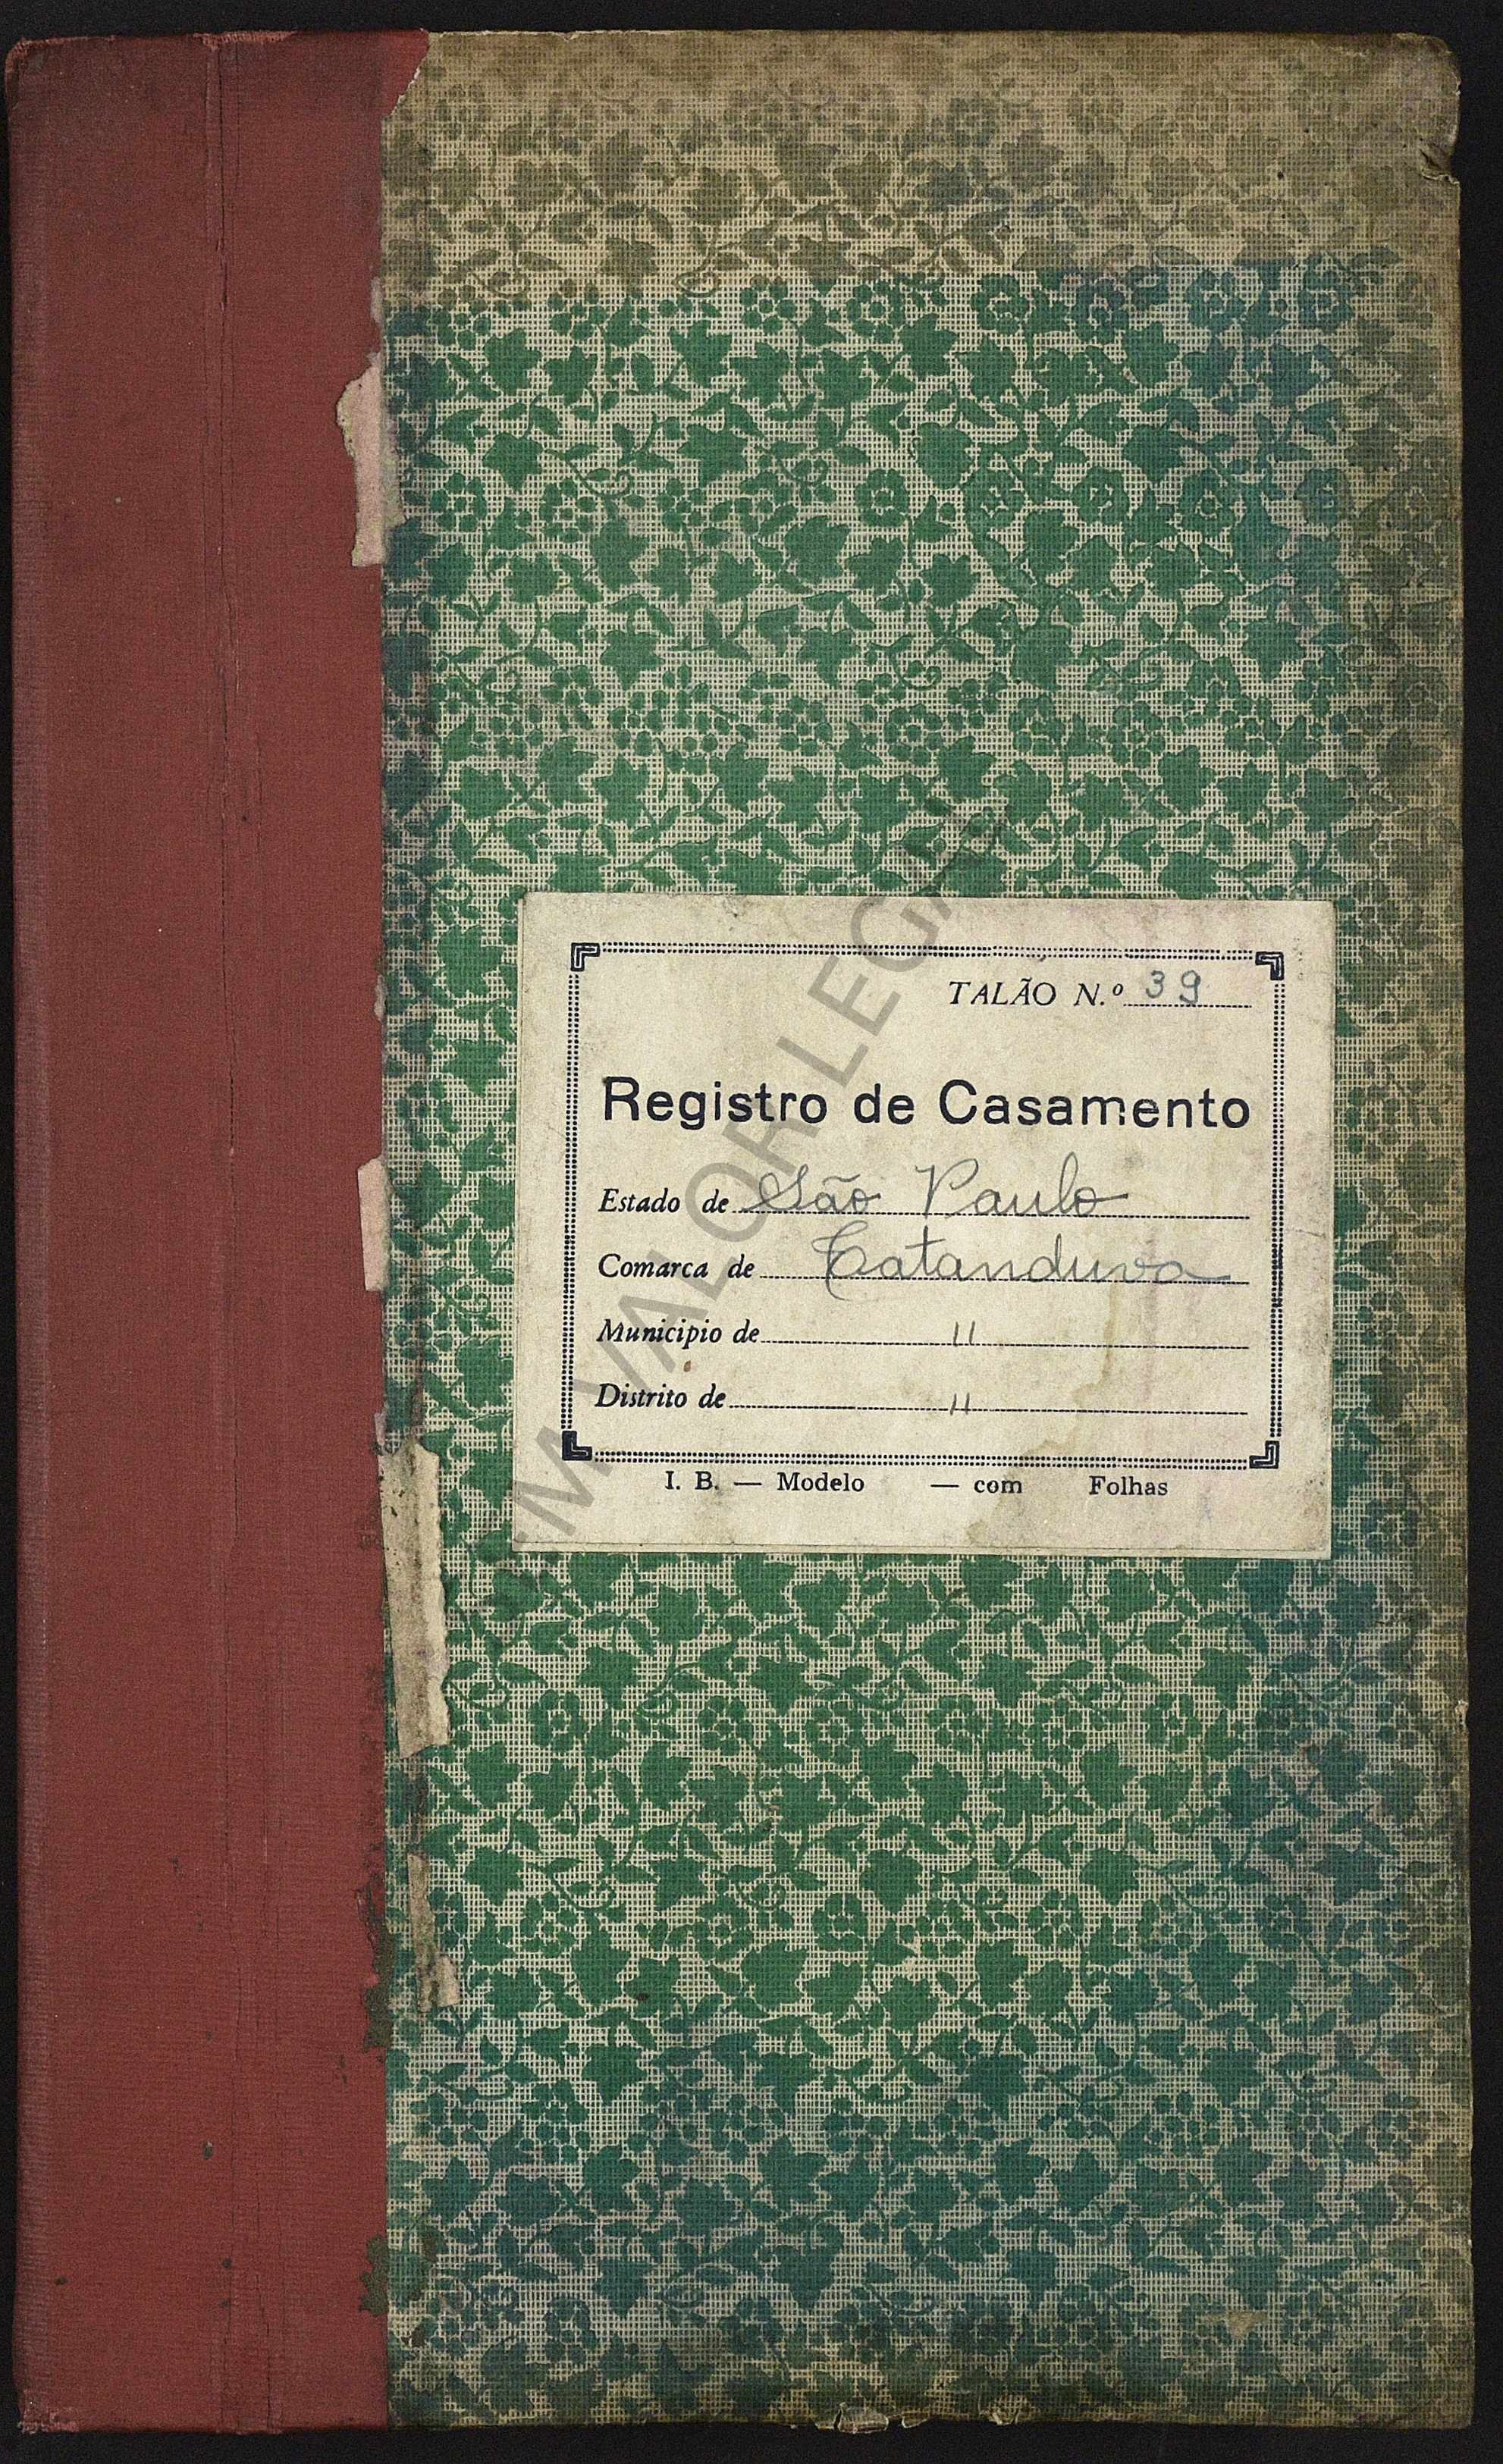 TALÃO N.º 39
Registro de Casamento
Estado de São Paulo
Comarca de Catanduva
Municipio de "
Distrito de "
I. B. — Modelo — com Folhas
SEM VALOR LEGAL